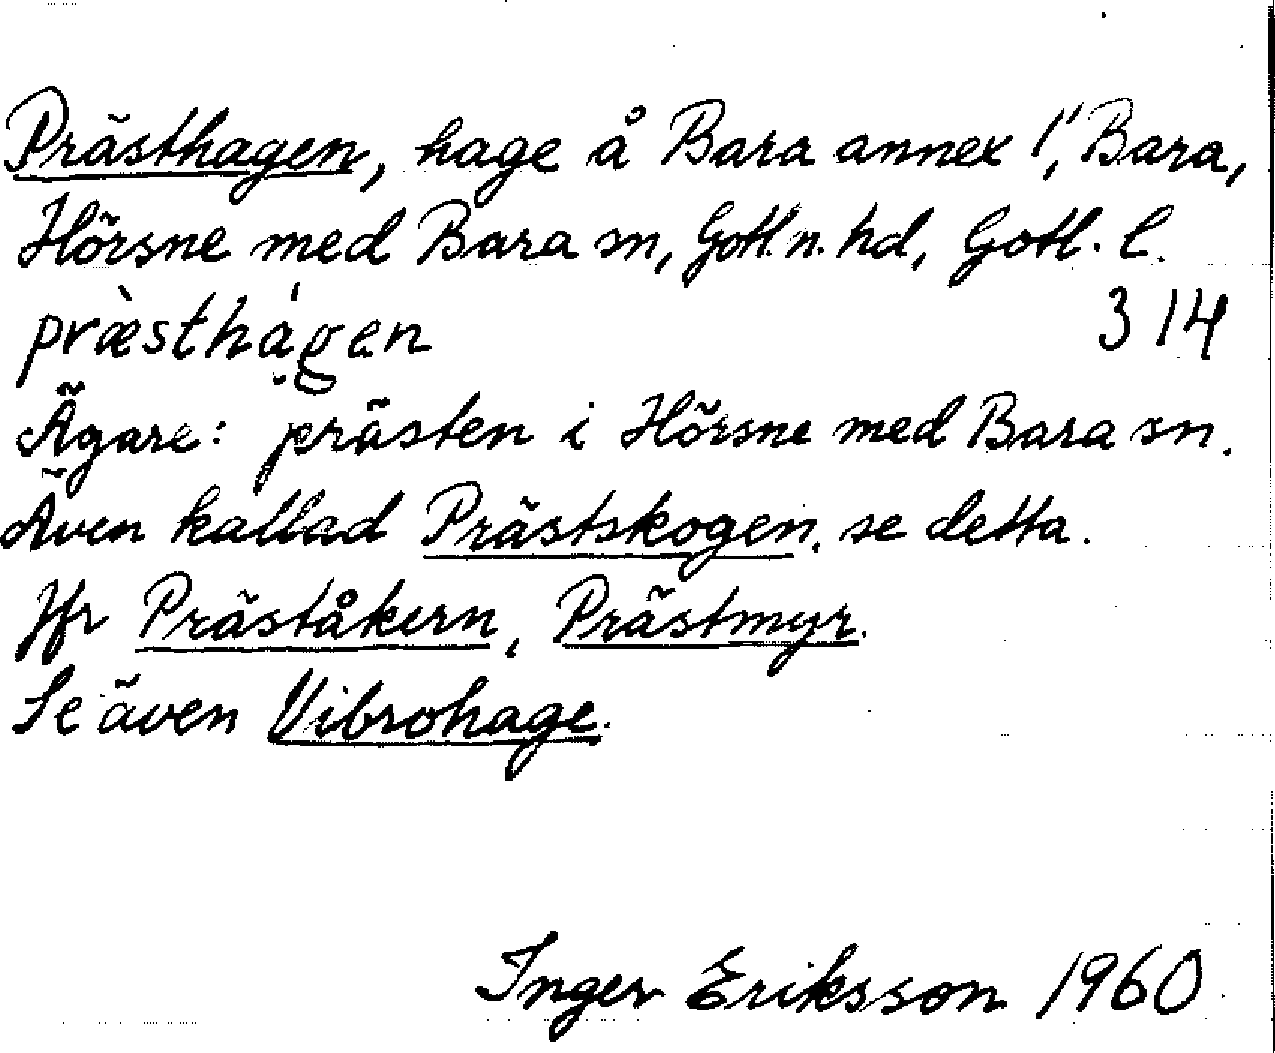 Prästhagen, hage å Bara annex 1", Bara,
Hörsne med Bara sn, Gotl. n. hd, Gotl. l.
præ̀sthágen 314
Ägare: prästen i Hörsne med Bara sn.
Även kallad Prästskogen, se detta.
Jfr Präståkern, Prästmyr.
Se även Vibrohage.
Inger Eriksson 1960